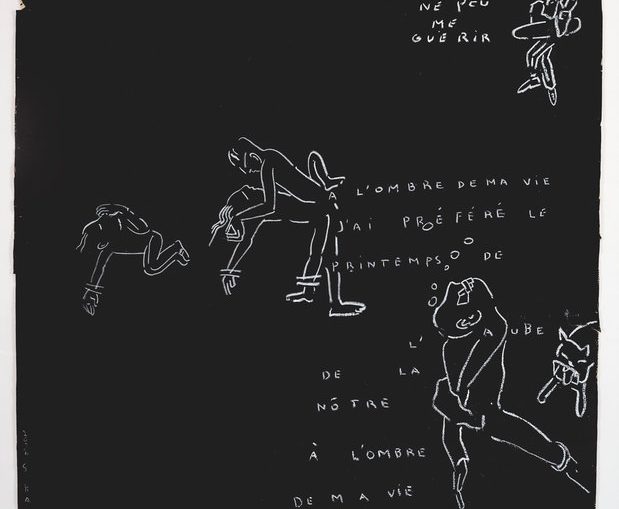 NE PEU
ME
GUÉRIR
À L'OMBRE DE MA VIE
J'AI PRÉFÉRÉ LE
PRINTEMPS DE
L'AUBE
DE LA
NÔTRE
À L'OMBRE
DE MA VIE